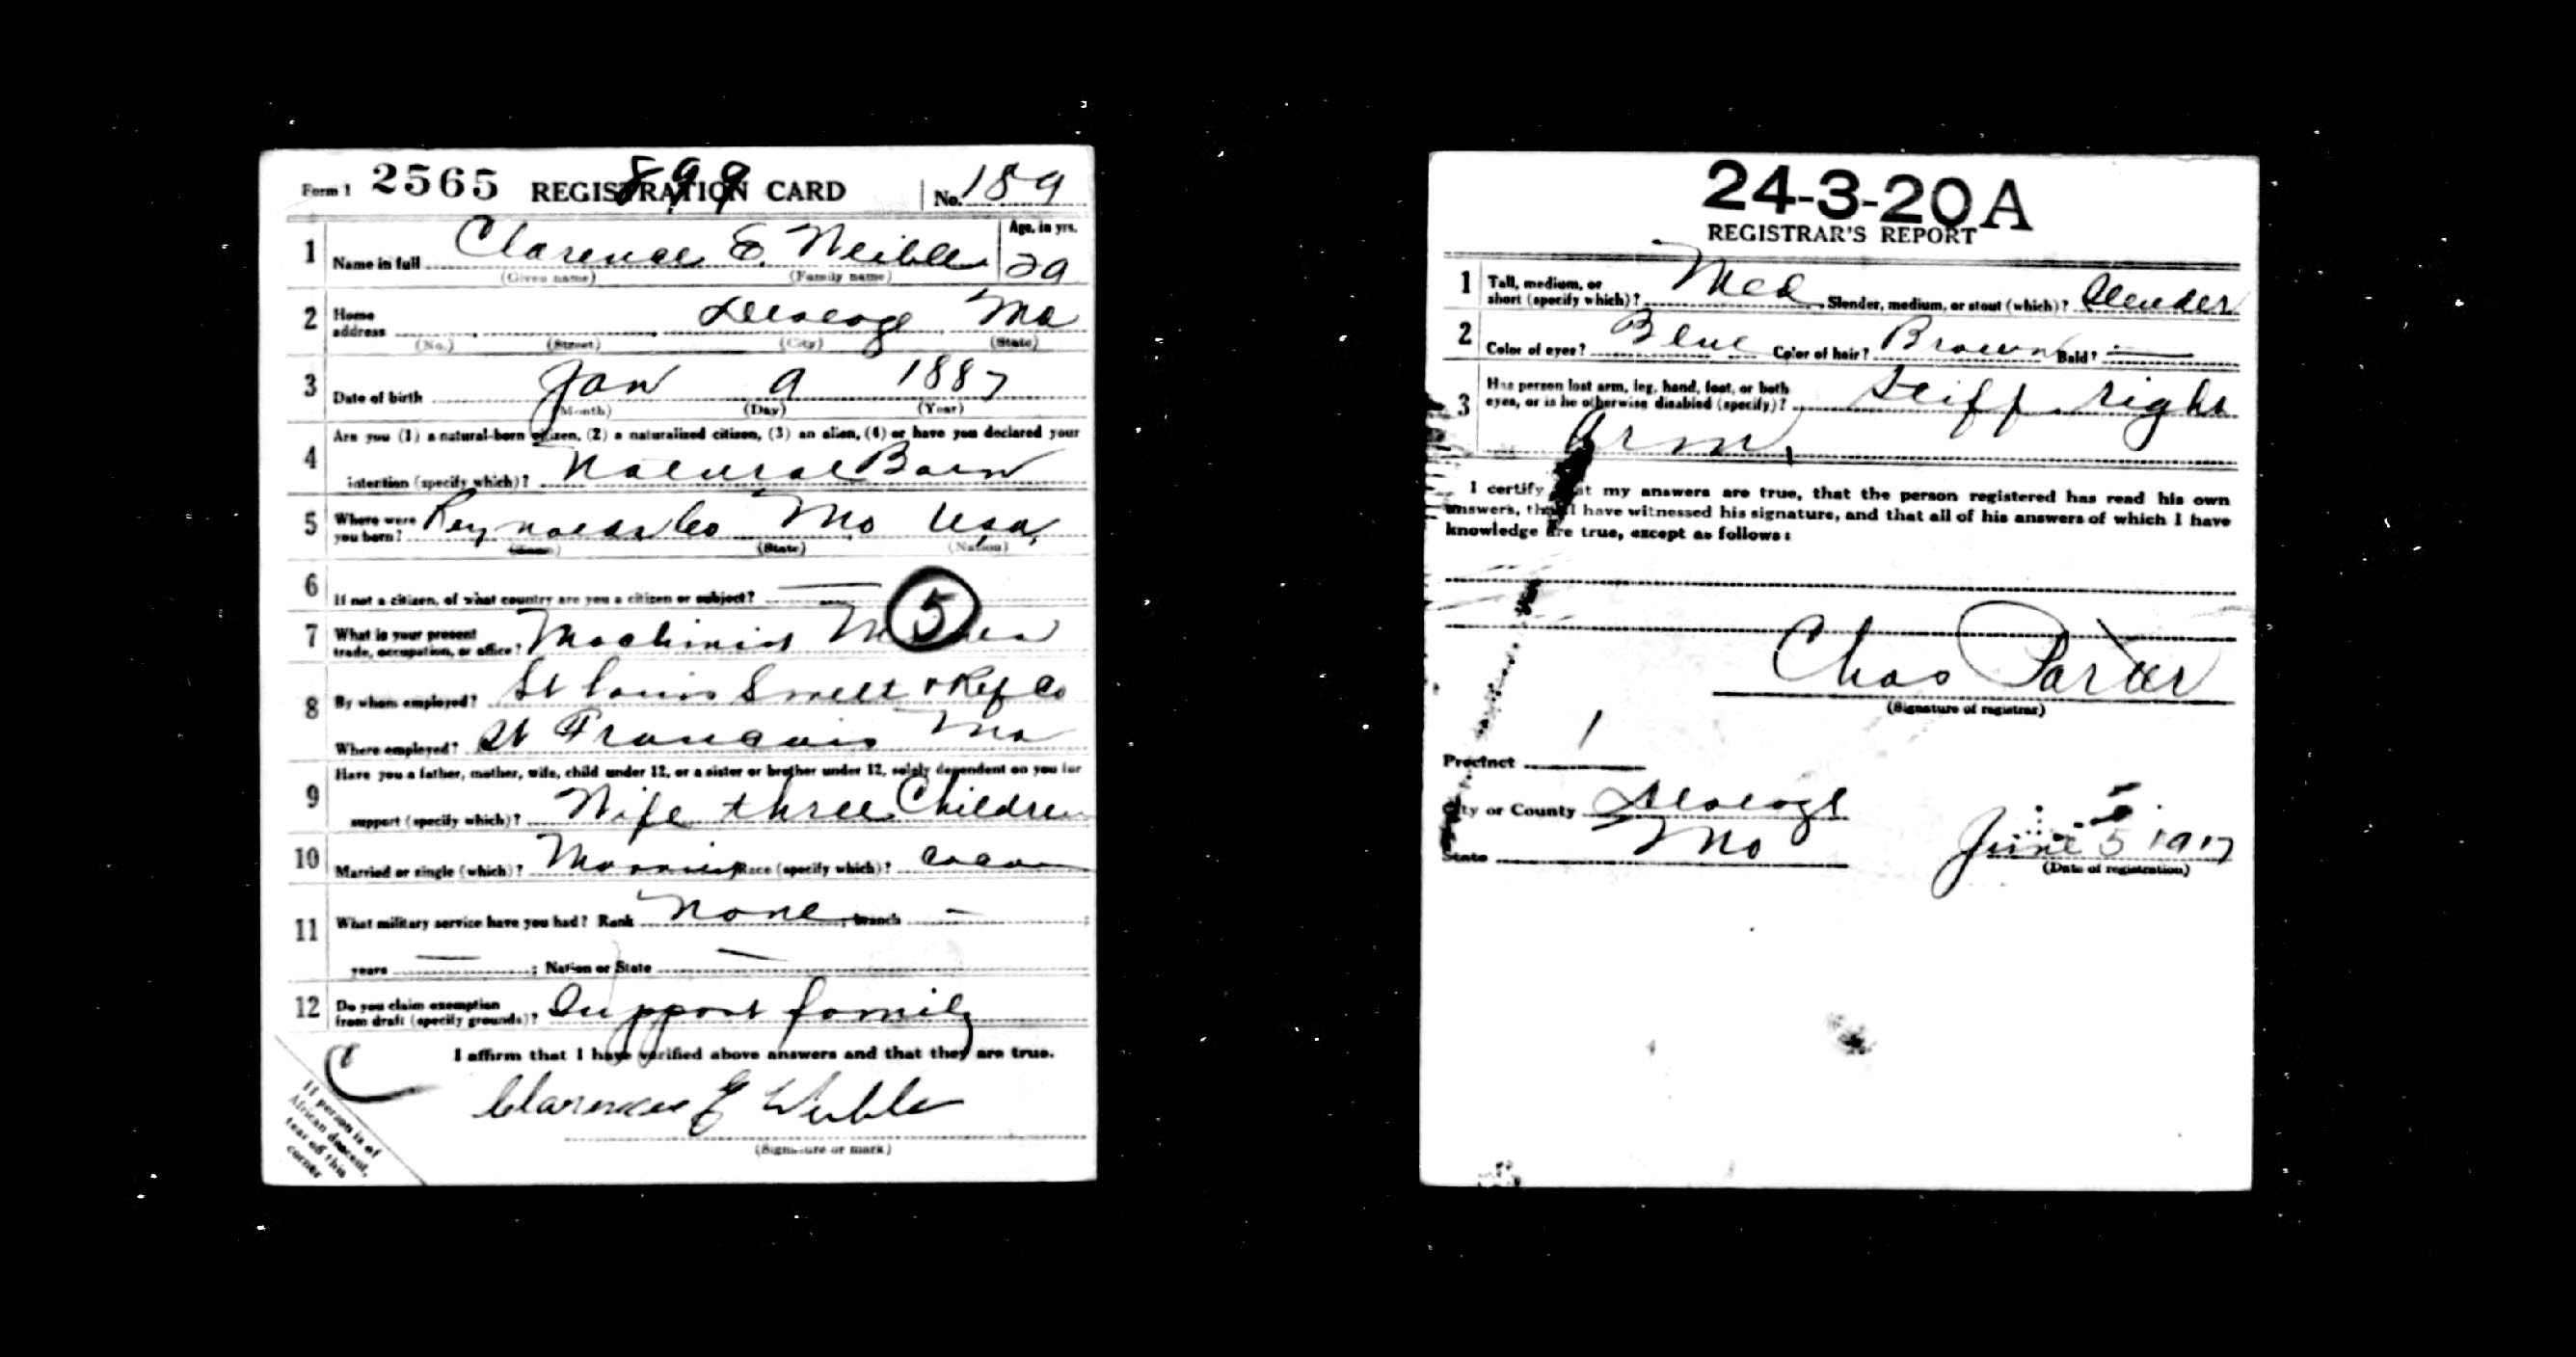 Form 1 2565 REGISTRATION CARD No. 189
899
1 Name in full Clarence E. Weible Age, in yrs.
(Given name) (Family name) 29
2 Home address Desloge Mo
(No.) (Street) (City) (State)
3 Date of birth Jan 9 1887
(Month) (Day) (Year)
Are you (1) a natural-born citizen, (2) a naturalized citizen, (3) an alien, (4) or have you declared your
4 intention (specify which)? Natural Born
5 Where were you born? Reynolds Co Mo USA
(Town) (State) (Nation)
6 If not a citizen, of what country are you a citizen or subject? —
5
7 What is your present trade, occupation, or office? Machinist
8 By whom employed? St Louis Smelt & Ref Co
Where employed? St Francois Mo
Have you a father, mother, wife, child under 12, or a sister or brother under 12, solely dependent on you for
9 support (specify which)? Wife three Children
10 Married or single (which)? Married Race (specify which)?
11 What military service have you had? Rank None; branch —;
years —; Nation or State —
12 Do you claim exemption from draft (specify grounds)? Support family
I affirm that I have verified above answers and that they are true.
Clarence E Weible
(Signature or mark)
If person is of
African descent,
tear off this
corner
24-3-20 A
REGISTRAR'S REPORT
1 Tall, medium, or short (specify which)? Med Slender, medium, or stout (which)? Slender
2 Color of eyes? Blue Color of hair? Brown Bald? —
3 Has person lost arm, leg, hand, foot, or both
eyes, or is he otherwise disabled (specify)? Stiff right
Arm.
I certify that my answers are true, that the person registered has read his own
answers, that I have witnessed his signature, and that all of his answers of which I have
knowledge are true, except as follows:
Chas Parker
(Signature of registrar)
Precinct 1
City or County Desloge
State Mo June 5 1917
(Date of registration)